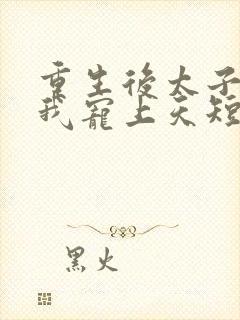 重生後太子
我寵上天短
黑火